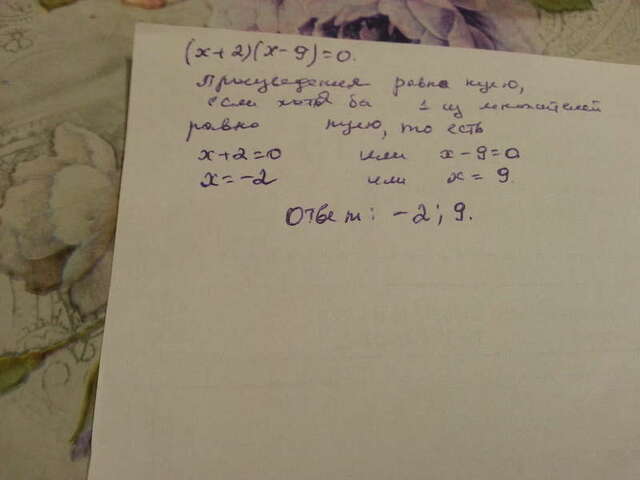 (x+2)(x-9)=0.
Произведения равна нулю,
если хотя ба 1 из множителей
равно нулю, то есть
x+2=0 или x-9=0
x=-2 или x= 9.
Ответ: -2; 9.